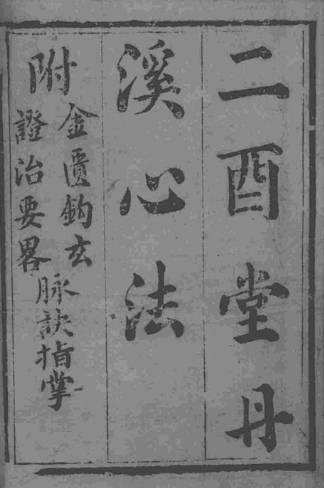 二酉堂丹
溪心法
附
金匱鈎玄
證治要畧
脉訣指掌